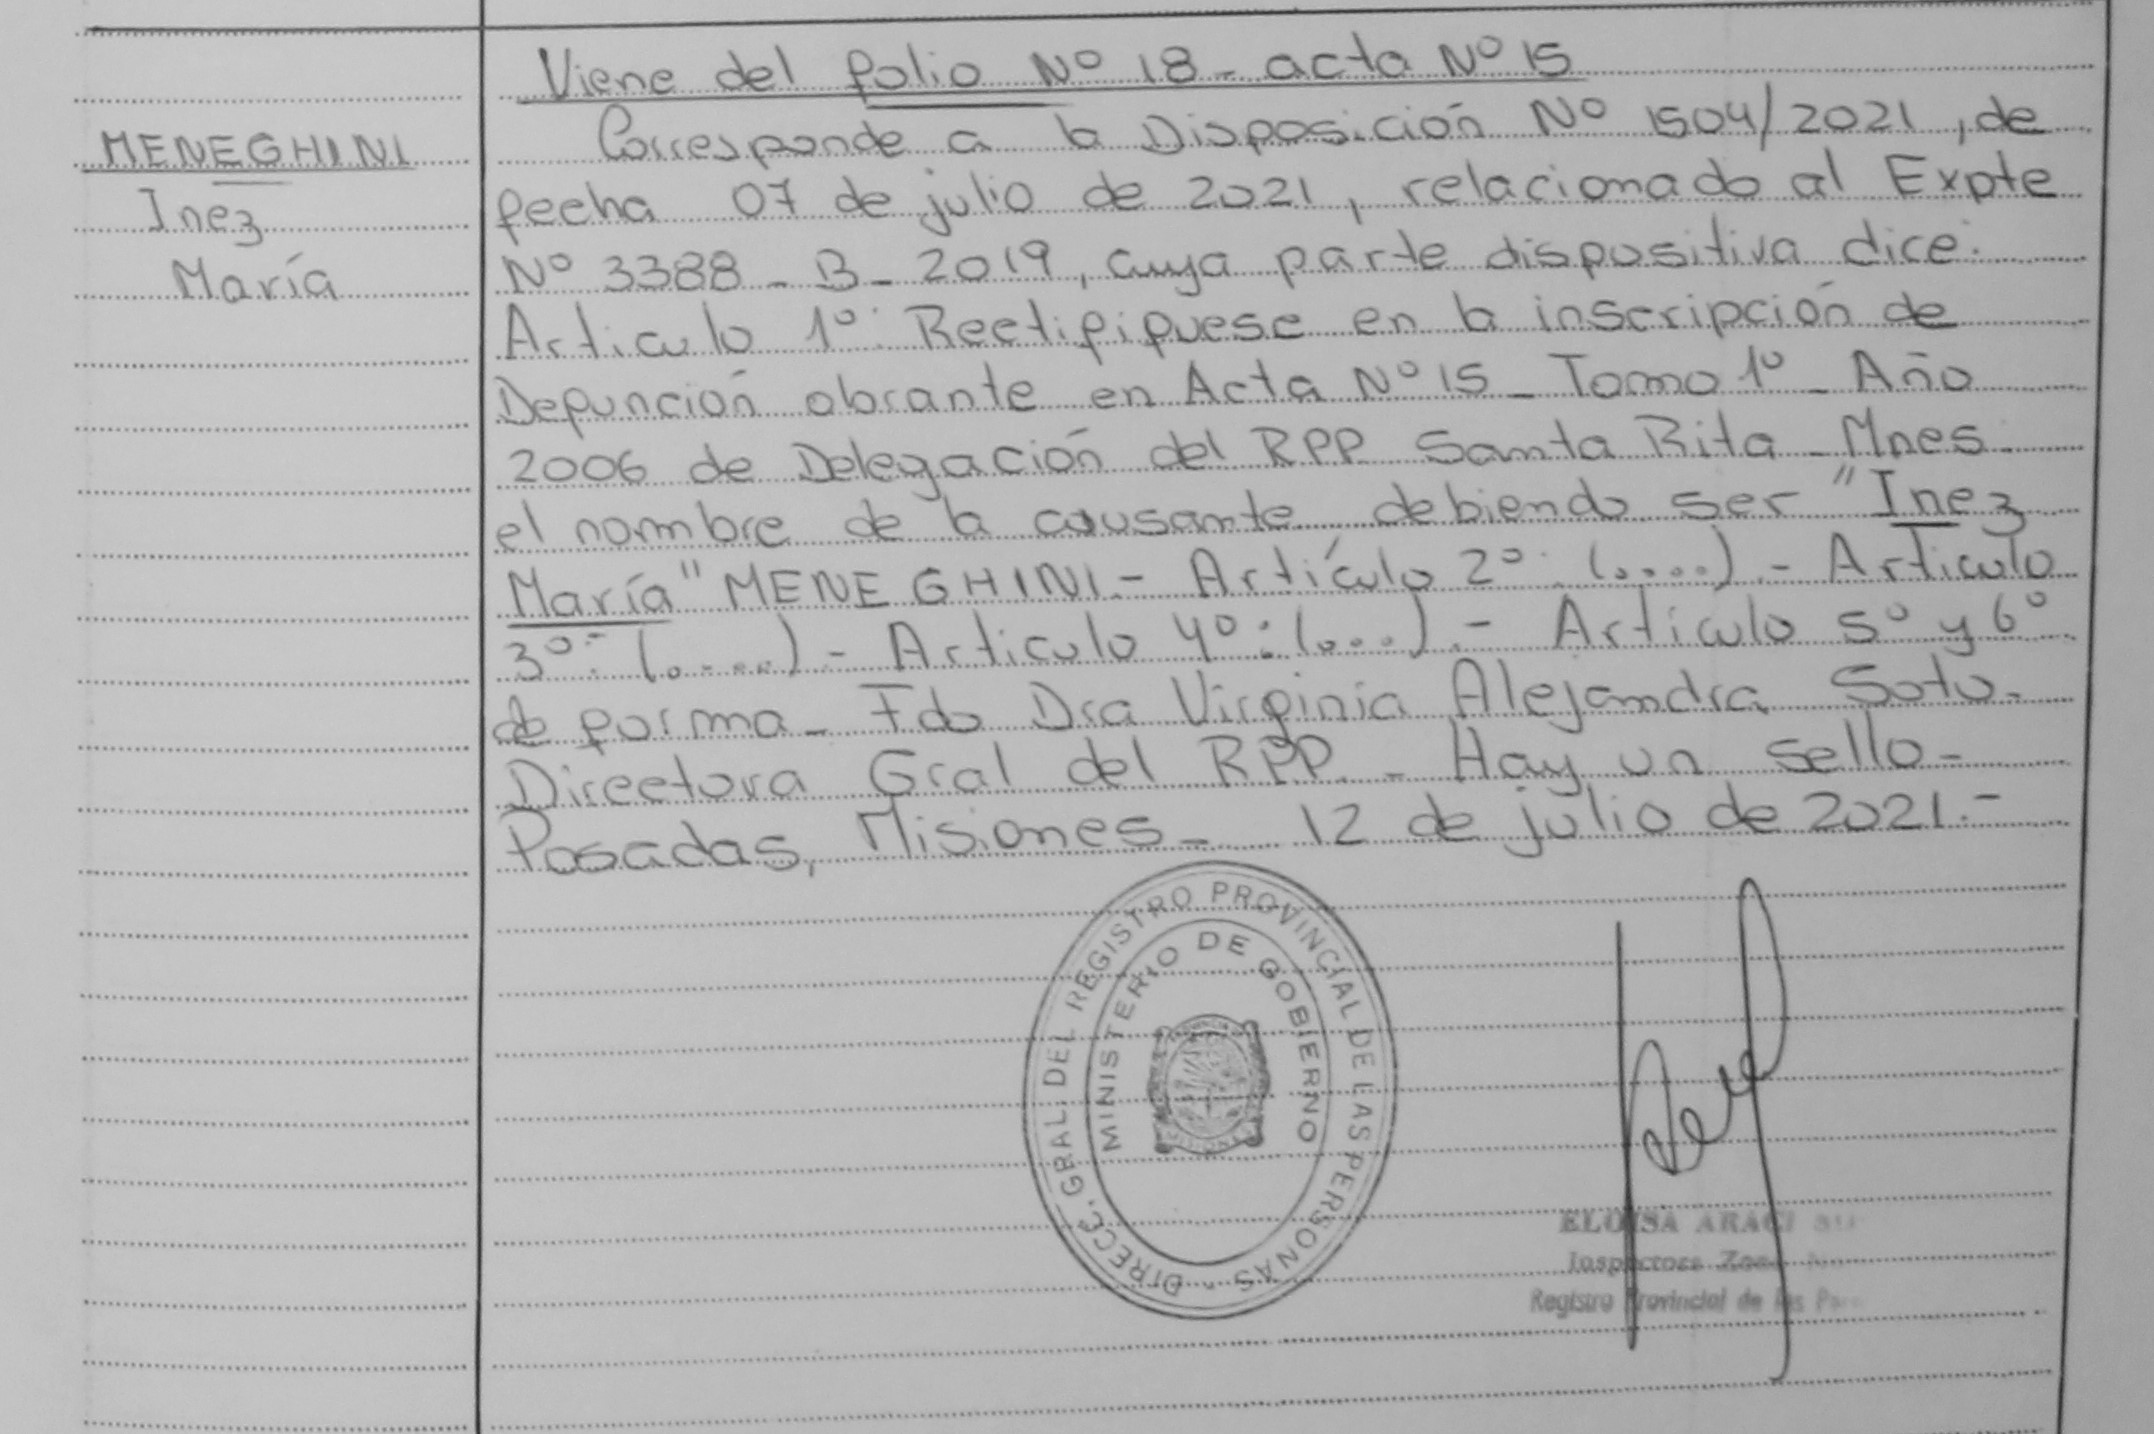 Viene del folio Nº 18 - acta Nº 15
MENEGHINI
Inez
María
Corresponde a la Disposición Nº 1504/2021, de
fecha 07 de julio de 2021, relacionado al Expte
Nº 3388 - B - 2019, cuya parte dispositiva dice:
Articulo 1º: Rectifiquese en la inscripción de
Defunción obrante en Acta Nº 15 - Tomo 1º - Año
2006 de Delegación del RPP Santa Rita - Mnes
el nombre de la causante debiendo ser "Inez
María" MENEGHINI - Artículo 2º: (....) - Artículo
3º: (.....) - Articulo 4º: (....) .- Artículo 5º y 6º
de forma - Fdo Dra Virginia Alejandra Soto -
Directora Gral del RPP. - Hay un sello -
Posadas, Misiones - 12 de julio de 2021.-
DIRECC. GRAL. DEL REGISTRO PROVINCIAL DE LAS PERSONAS
MINISTERIO DE GOBIERNO
MISIONES
ELOISA ARACI
Inspectora Zona
Registro Provincial de las